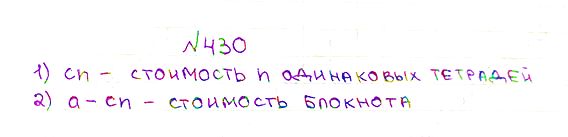 №430
1) cn - стоимость n одинаковых тетрадей
2) a - cn - стоимость блокнота